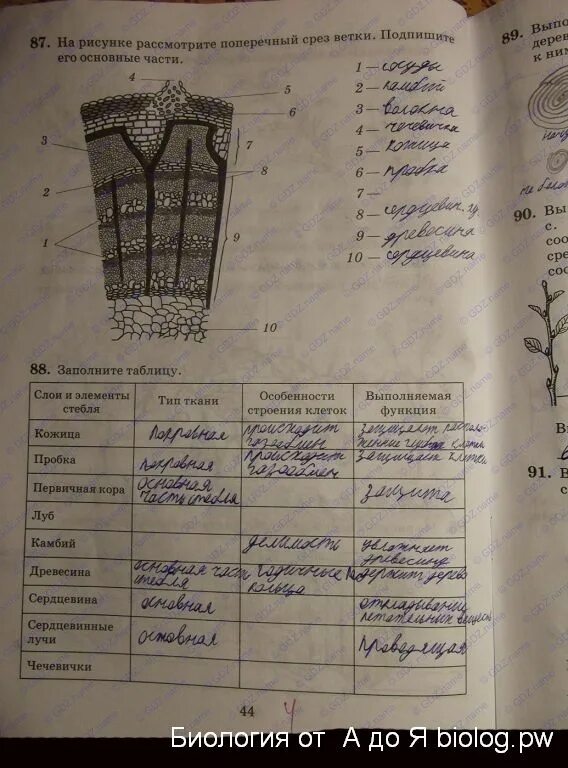 87. На рисунке рассмотрите поперечный срез ветки. Подпишите
его основные части.
4
5
6
3
7
8
2
1
9
10
1 – сосуды
2 – камбий
3 – волокна
4 – чечевичка
5 – кожица
6 – пробка
7 –
8 – сердцевин.
9 – древесина
10 – сердцевина
88. Заполните таблицу.
Слои и элементы стебля
Тип ткани
Особенности строения клеток
Выполняемая функция
Кожица
покровная
происходит газообмен
защищает
Пробка
покровная
происходит газообмен
защищает клетки
Первичная кора
основная часть стебля
защита
Луб
Камбий
делимость
увлажняет древесину
Древесина
основная часть стебля
годичные кольца
держит дерево
Сердцевина
основная
откладывание питательных веществ
Сердцевинные лучи
основная
проводящая
Чечевички
44
4
89.
90.
91.
© GDZ.name
Биология от А до Я biolog.pw